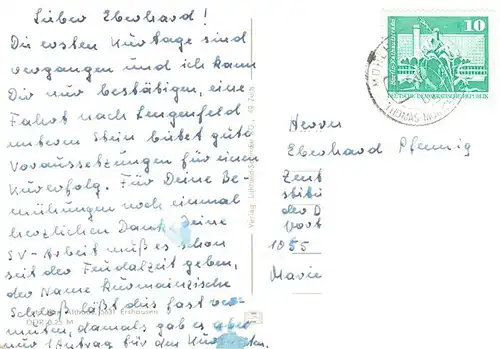 Lieber Eberhard!
Die ersten Kurtage sind
vergangen und ich kann
Dir nur bestätigen, eine
Fahrt nach Lengenfeld
unterm Stein bietet gute
Voraussetzungen für einen
Kurerfolg. Für Deine Be-
mühungen noch einmal
herzlichen Dank. Deine
SV-Arbeit muß es schon
seit der Feudalzeit geben,
der Name Kurmainzische
Schloß läßt dies fast ver-
muten, damals gab es aber
nur 1 Antrag für den Kur
Ershausen
DDR 0,25 M
Verlag
10
DEUTSCHE DEMOKRATISCHE REPUBLIK
THOMAS
Herrn
Eberhard Pfennig
Zent
stit
der D
1055
Marie